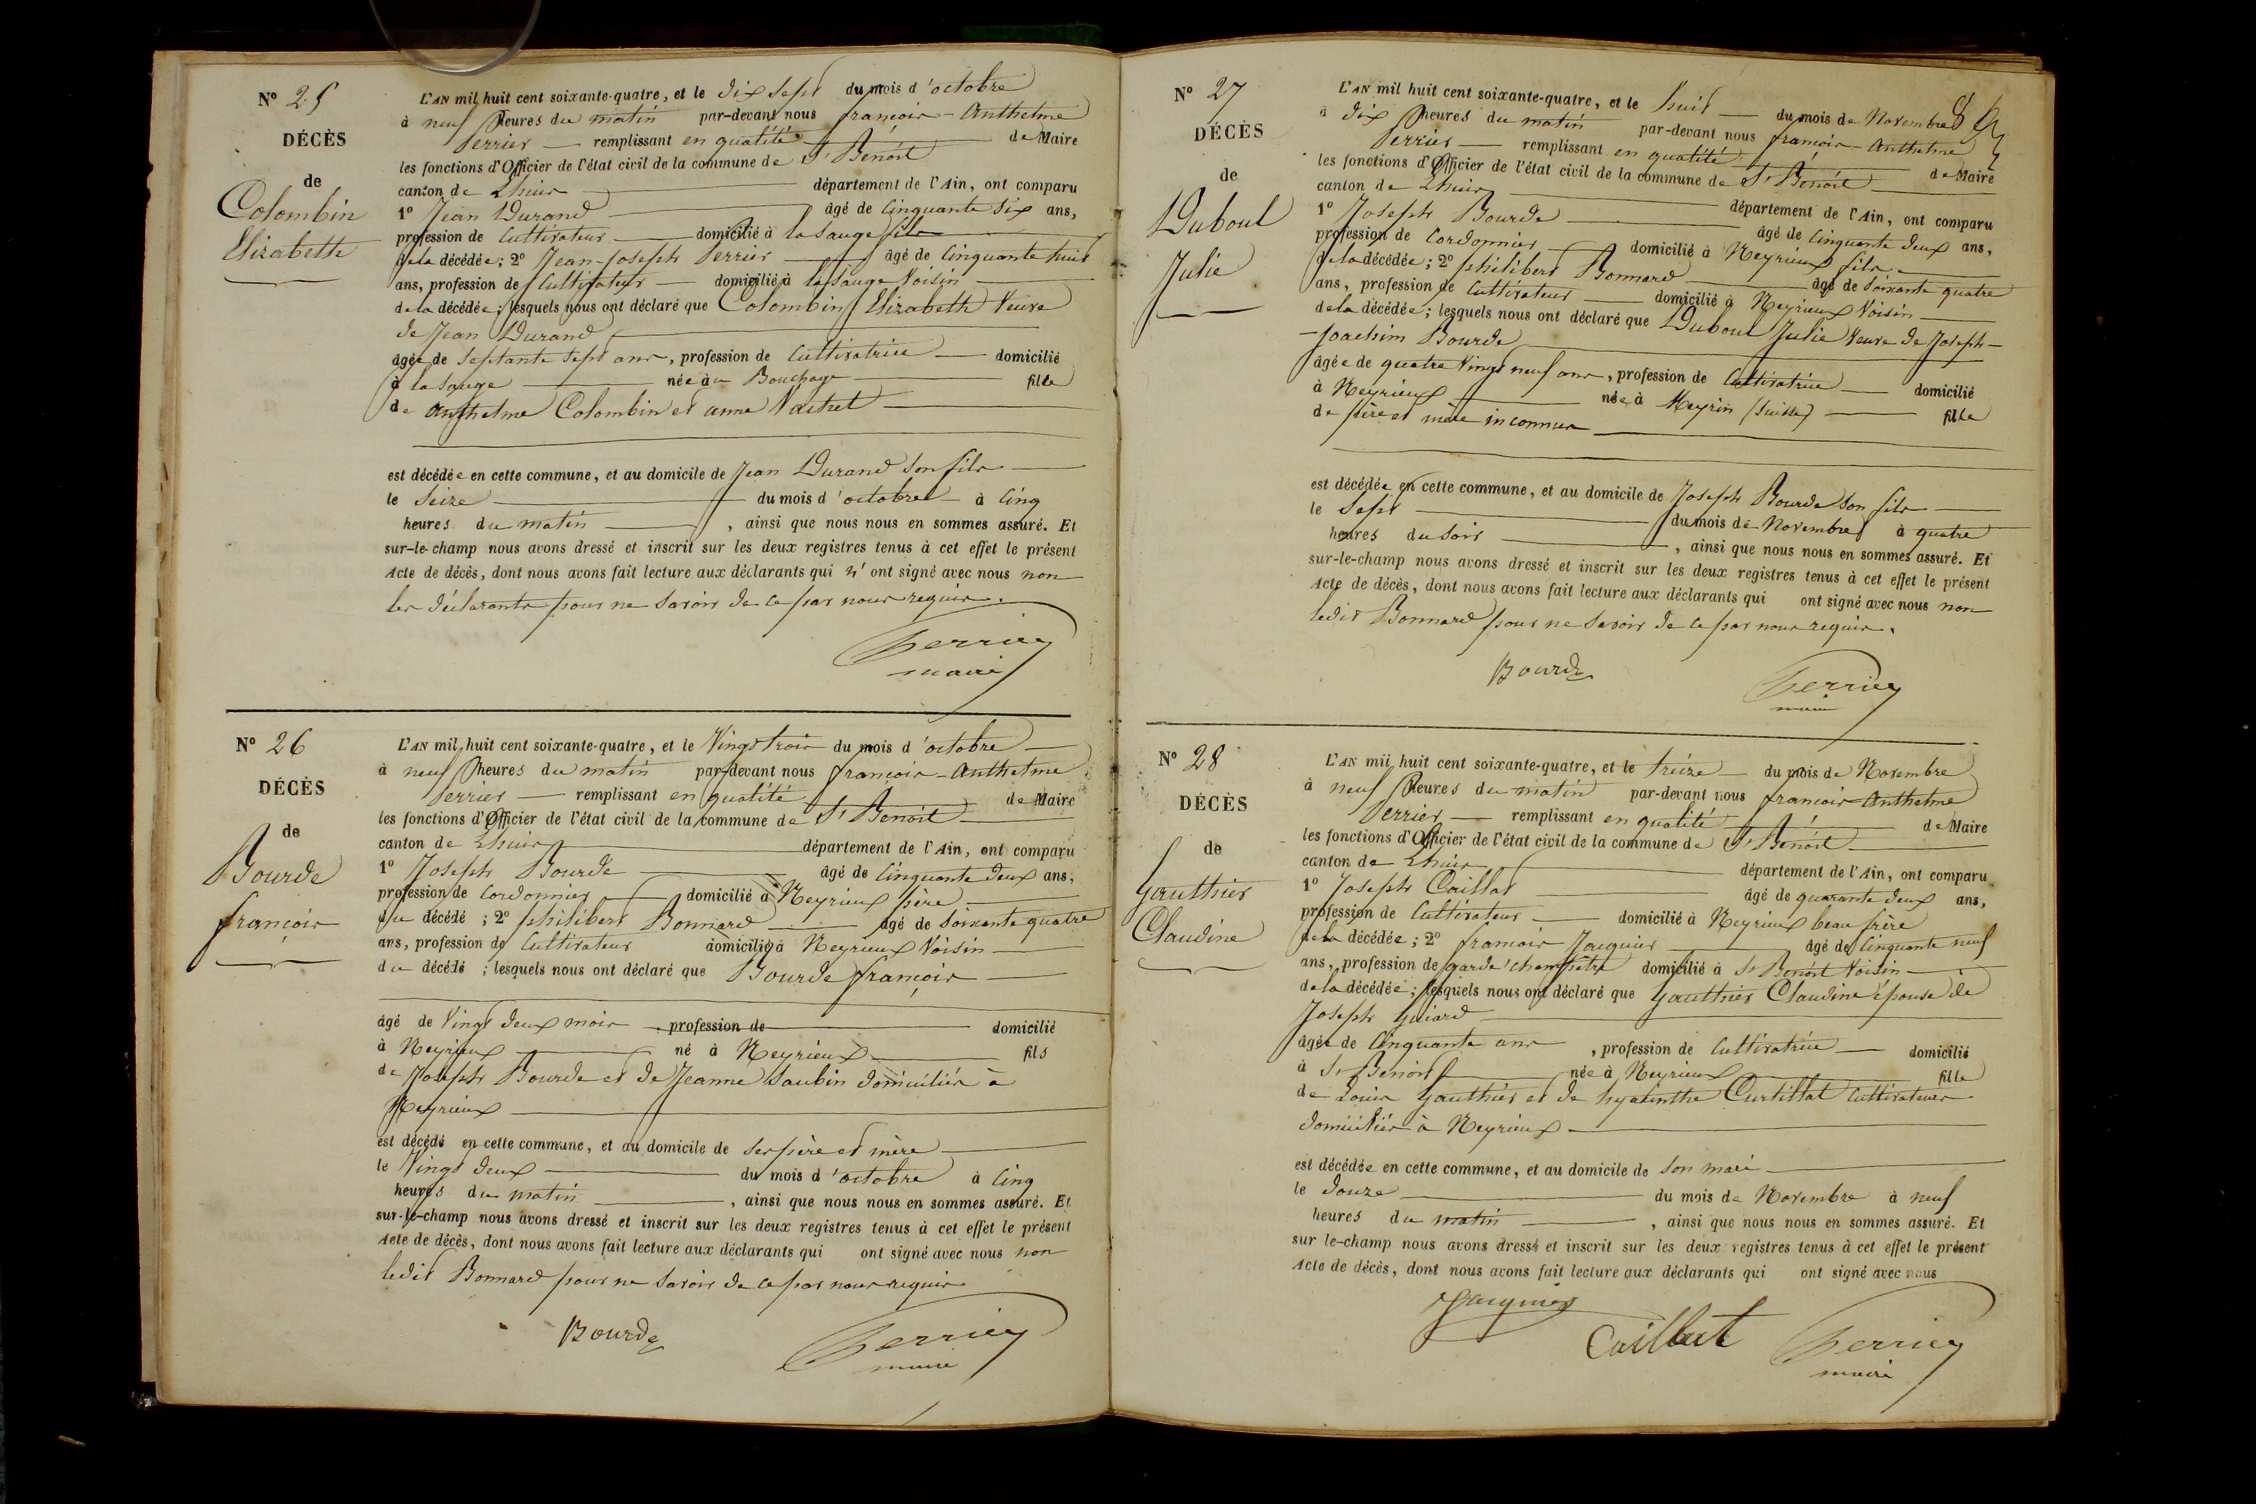 Nº 25
DÉCÈS
de
Colombin
Elizabeth
L'AN mil huit cent soixante-quatre, et le dix sept du mois d'octobre
à neuf heures du matin par-devant nous françois-Anthelme
Perrier remplissant en qualité de Maire
les fonctions d'Officier de l'état civil de la commune de St Benoit
canton de Lhuis département de l'Ain, ont comparu
1º Jean Durand âgé de cinquante six ans,
profession de Cultivateur domicilié à la Sauge fils
de la décédée; 2º Jean-Joseph Perrier âgé de cinquante huit
ans, profession de Cultivateur domicilié à la Sauge Voisin
de la décédée; lesquels nous ont déclaré que Colombin Elizabeth Veuve
de Jean Durand
âgée de septante sept ans, profession de Cultivatrice domicilié
à la Sauge née au Bouchage fille
de Anthelme Colombin et anne
est décédée en cette commune, et au domicile de Jean Durand son fils
le Seize du mois d'octobre à Cinq
heures du matin, ainsi que nous nous en sommes assuré. Et
sur-le-champ nous avons dressé et inscrit sur les deux registres tenus à cet effet le présent
Acte de décès, dont nous avons fait lecture aux déclarants qui n'ont signé avec nous non
les déclarants pour ne savoir de ce par nous requis.
Perrier
maire
Nº 26
DÉCÈS
de
Bourde
françois
L'AN mil huit cent soixante-quatre, et le Vingt trois du mois d'octobre
à neuf heures du matin par-devant nous françois-Anthelme
Perrier remplissant en qualité de Maire
les fonctions d'Officier de l'état civil de la commune de St Benoit
canton de Lhuis département de l'Ain, ont comparu
1º Joseph Bourde âgé de Cinquante deux ans,
profession de Cordonnier domicilié à Neyrieux père
du décédé; 2º philibert Bonnard âgé de soixante quatre
ans, profession de Cultivateur domicilié à Neyrieux Voisin
du décédé; lesquels nous ont déclaré que Bourde françois
âgé de Vingt deux mois profession de domicilié
à Neyrieux né à Neyrieux fils
de Joseph Bourde et de Jeanne Saubin domiciliés à
Neyrieux
est décédé en cette commune, et au domicile de ses père et mère
le Vingt deux du mois d'octobre à Cinq
heures du matin, ainsi que nous nous en sommes assuré. Et
sur-le-champ nous avons dressé et inscrit sur les deux registres tenus à cet effet le présent
Acte de décès, dont nous avons fait lecture aux déclarants qui ont signé avec nous non
ledit Bonnard pour ne savoir de ce par nous requis
Bourde
Perrier
maire
Nº 27
DÉCÈS
de
Duboul
Julie
L'AN mil huit cent soixante-quatre, et le huit du mois de Novembre
à dix heures du matin par-devant nous françois-Anthelme
Perrier remplissant en qualité de Maire
les fonctions d'Officier de l'état civil de la commune de St Benoit
canton de Lhuis département de l'Ain, ont comparu
1º Joseph Bourde âgé de cinquante deux ans,
profession de Cordonnier domicilié à Neyrieux fils
de la décédée; 2º philibert Bonnard âgé de soixante quatre
ans, profession de Cultivateur domicilié à Neyrieux Voisin
de la décédée; lesquels nous ont déclaré que Duboul Julie Veuve de Joseph-
-Joachim Bourde
âgée de quatre Vingt neuf ans, profession de Cultivatrice domicilié
à Neyrieux née à Meyrin (Suisse) fille
de père et mère inconnus
est décédée en cette commune, et au domicile de Joseph Bourde son fils
le Sept du mois de Novembre à quatre
heures du soir, ainsi que nous nous en sommes assuré. Et
sur-le-champ nous avons dressé et inscrit sur les deux registres tenus à cet effet le présent
Acte de décès, dont nous avons fait lecture aux déclarants qui ont signé avec nous non
ledit Bonnard pour ne savoir de ce par nous requis.
Bourde
Perrier
maire
Nº 28
DÉCÈS
de
Gauthier
Claudine
L'AN mil huit cent soixante-quatre, et le treize du mois de Novembre
à neuf heures du matin par-devant nous françois-Anthelme
Perrier remplissant en qualité de Maire
les fonctions d'Officier de l'état civil de la commune de St Benoit
canton de Lhuis département de l'Ain, ont comparu
1º Joseph Caillat âgé de quarante deux ans,
profession de Cultivateur domicilié à Neyrieux beau frère
de la décédée; 2º françois Jacquier âgé de Cinquante neuf
ans, profession de garde champêtre domicilié à St Benoit Voisin
de la décédée; lesquels nous ont déclaré que Gauthier Claudine épouse de
Joseph Guiard
âgée de Cinquante ans, profession de Cultivatrice domicilié
à St Benoit née à Neyrieux fille
de Louis Gauthier et de hyacinthe Curtillat Cultivateurs
domiciliés à Neyrieux
est décédée en cette commune, et au domicile de son mari
le douze du mois de Novembre à neuf
heures du matin, ainsi que nous nous en sommes assuré. Et
sur le-champ nous avons dressé et inscrit sur les deux registres tenus à cet effet le présent
Acte de décès, dont nous avons fait lecture aux déclarants qui ont signé avec nous
Jacquier
Caillat
Perrier
maire